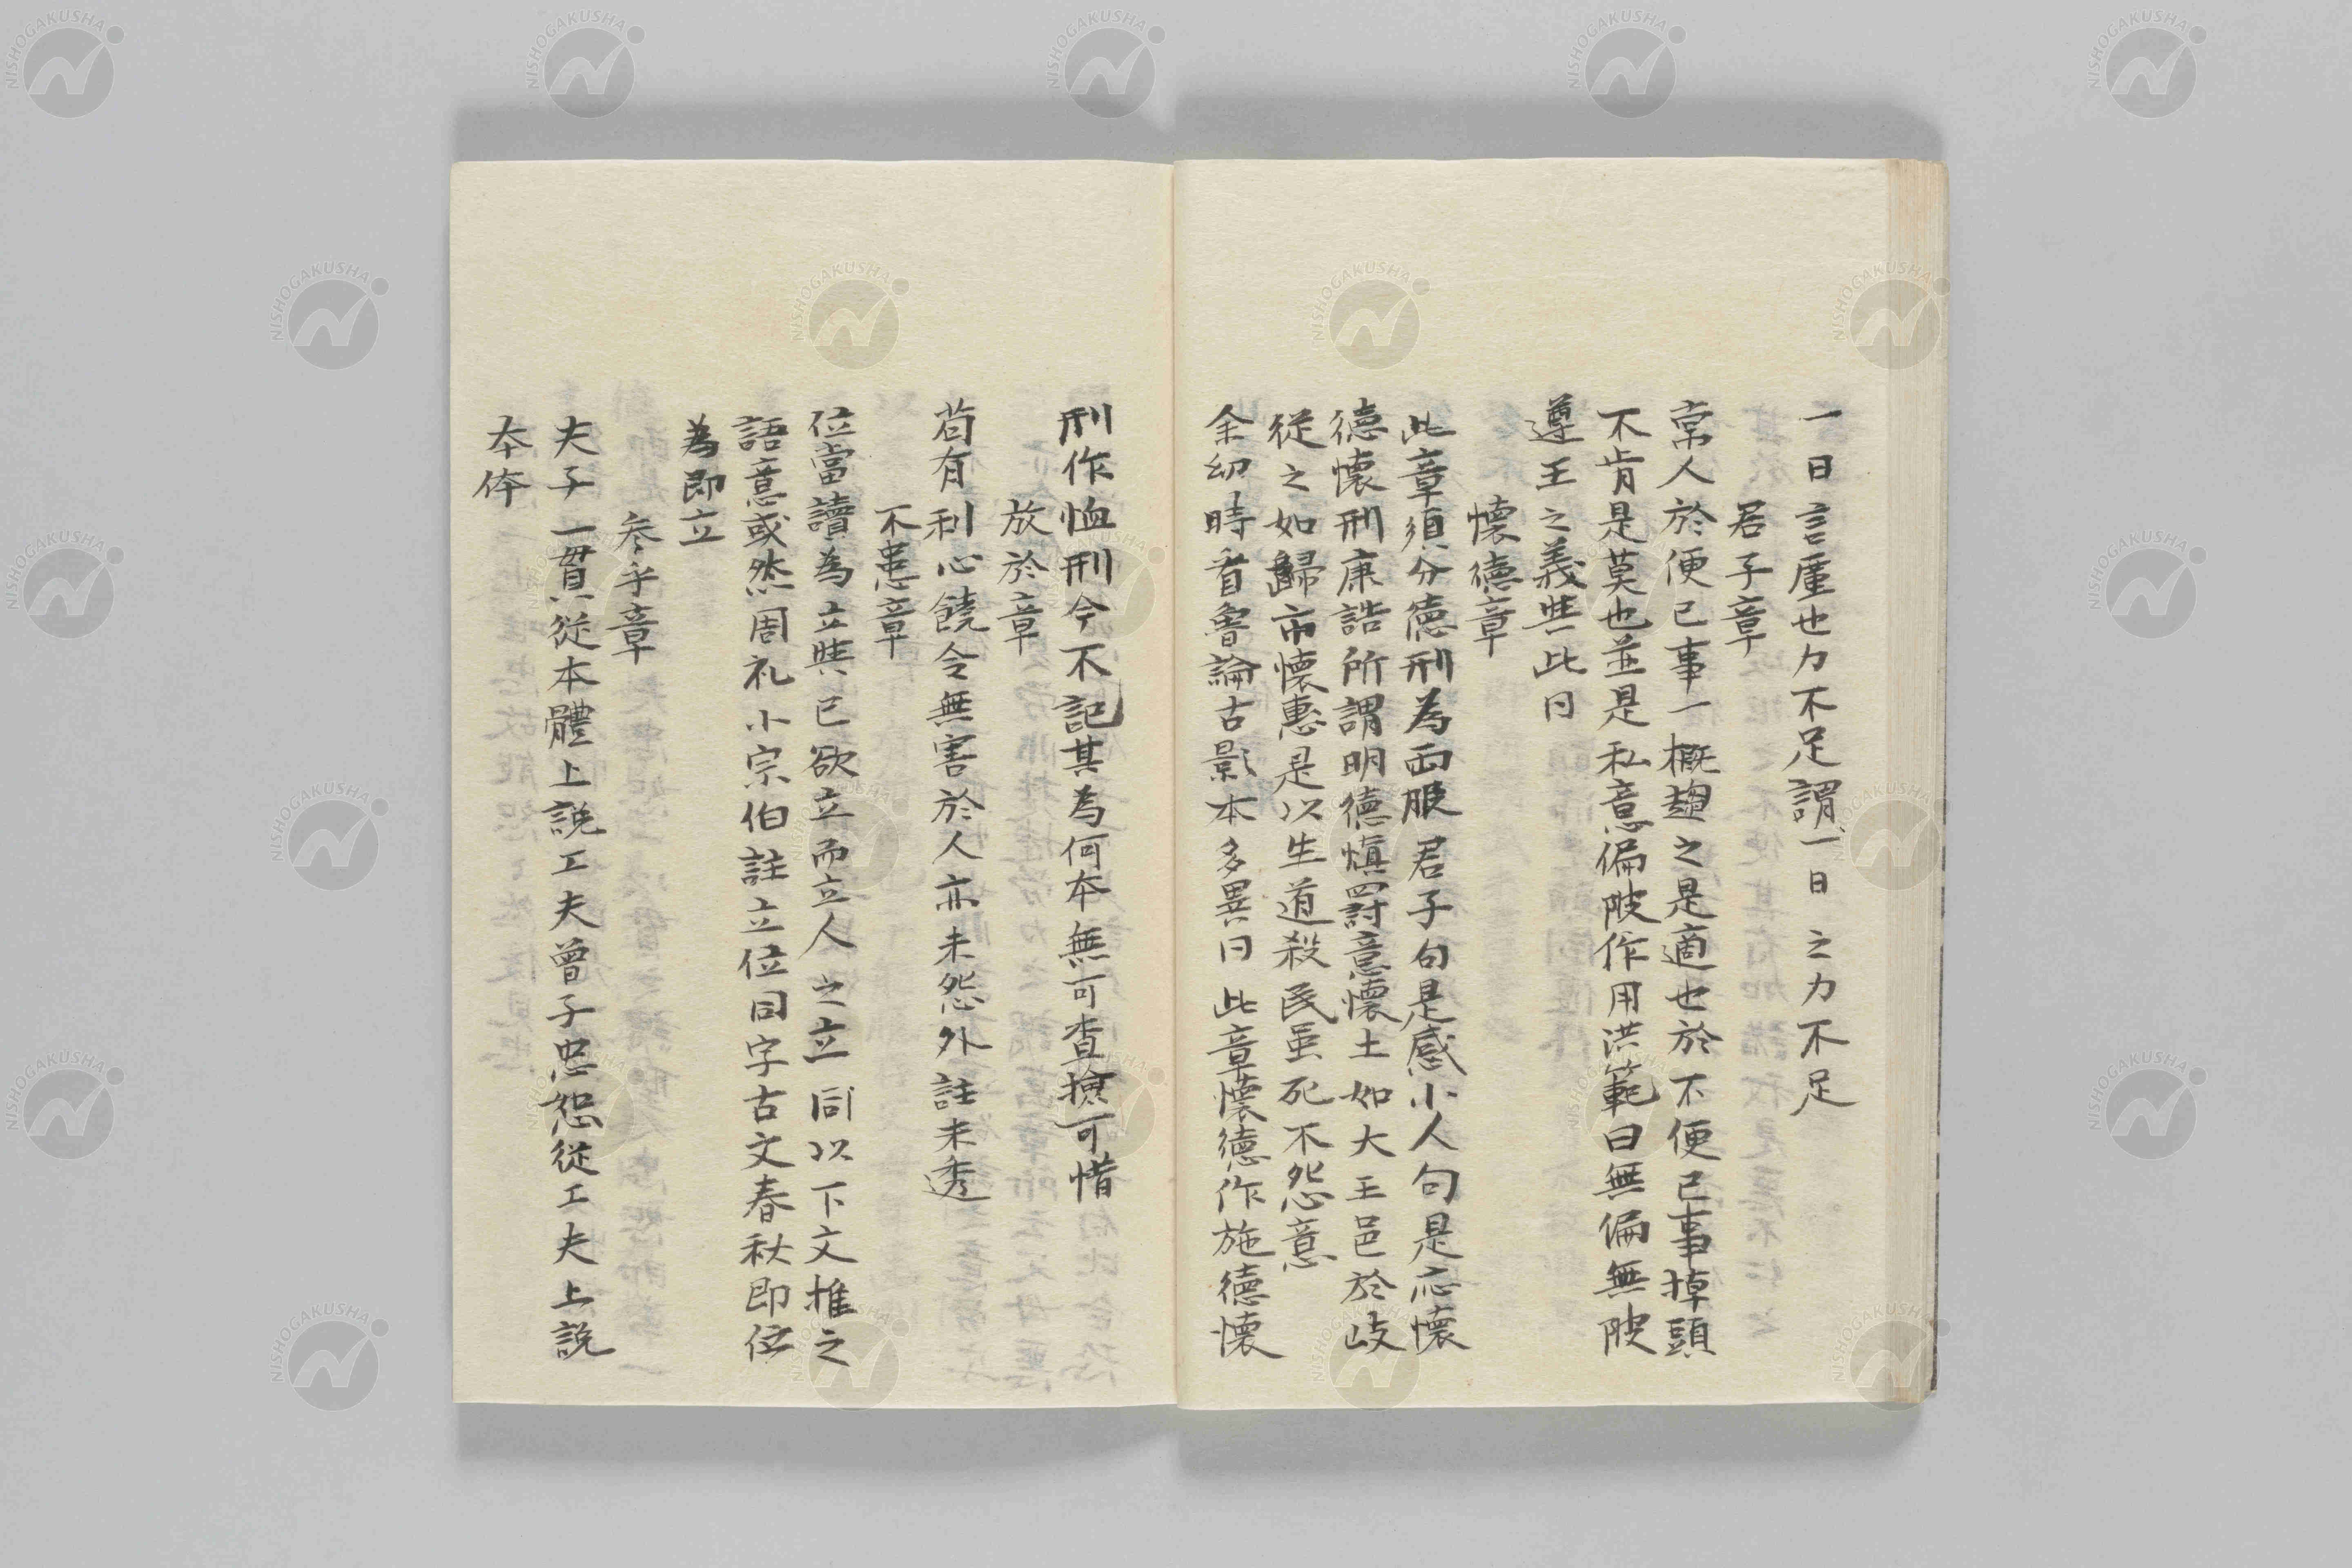 一日言廑也力不足謂一日之力不足
君子章
常人於便已事一概趨之是適也於不便已事掉頭
不肯是莫也並是私意偏陂作用洪範曰無偏無陂
遵王之義與此同
懷德章
此章須分德刑為兩股君子句是感小人句是応懷
德懷刑康誥所謂明德慎罰意懷土如大王邑於岐
從之如歸市懷惠是以生道殺民虽死不怨意
余幼時看魯論古影本多異同此章懷德作施德懷
刑作恤刑今不記其為何本無可查撿可惜
放於章
苟有利心饒令無害於人亦未怨外註未透
不患章
位當讀為立與已欲立而立人之立同以下文推之
語意或然周礼小宗伯註立位同字古文春秋即位
為即立
參乎章
夫子一貫從本體上說工夫曾子忠恕從工夫上説
本体
NISHOGAKUSHA